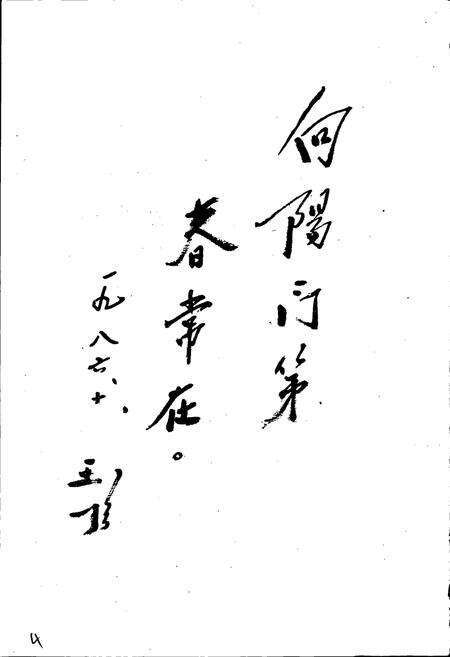 向陽门第
春常在。
一九八六、十、
王
4